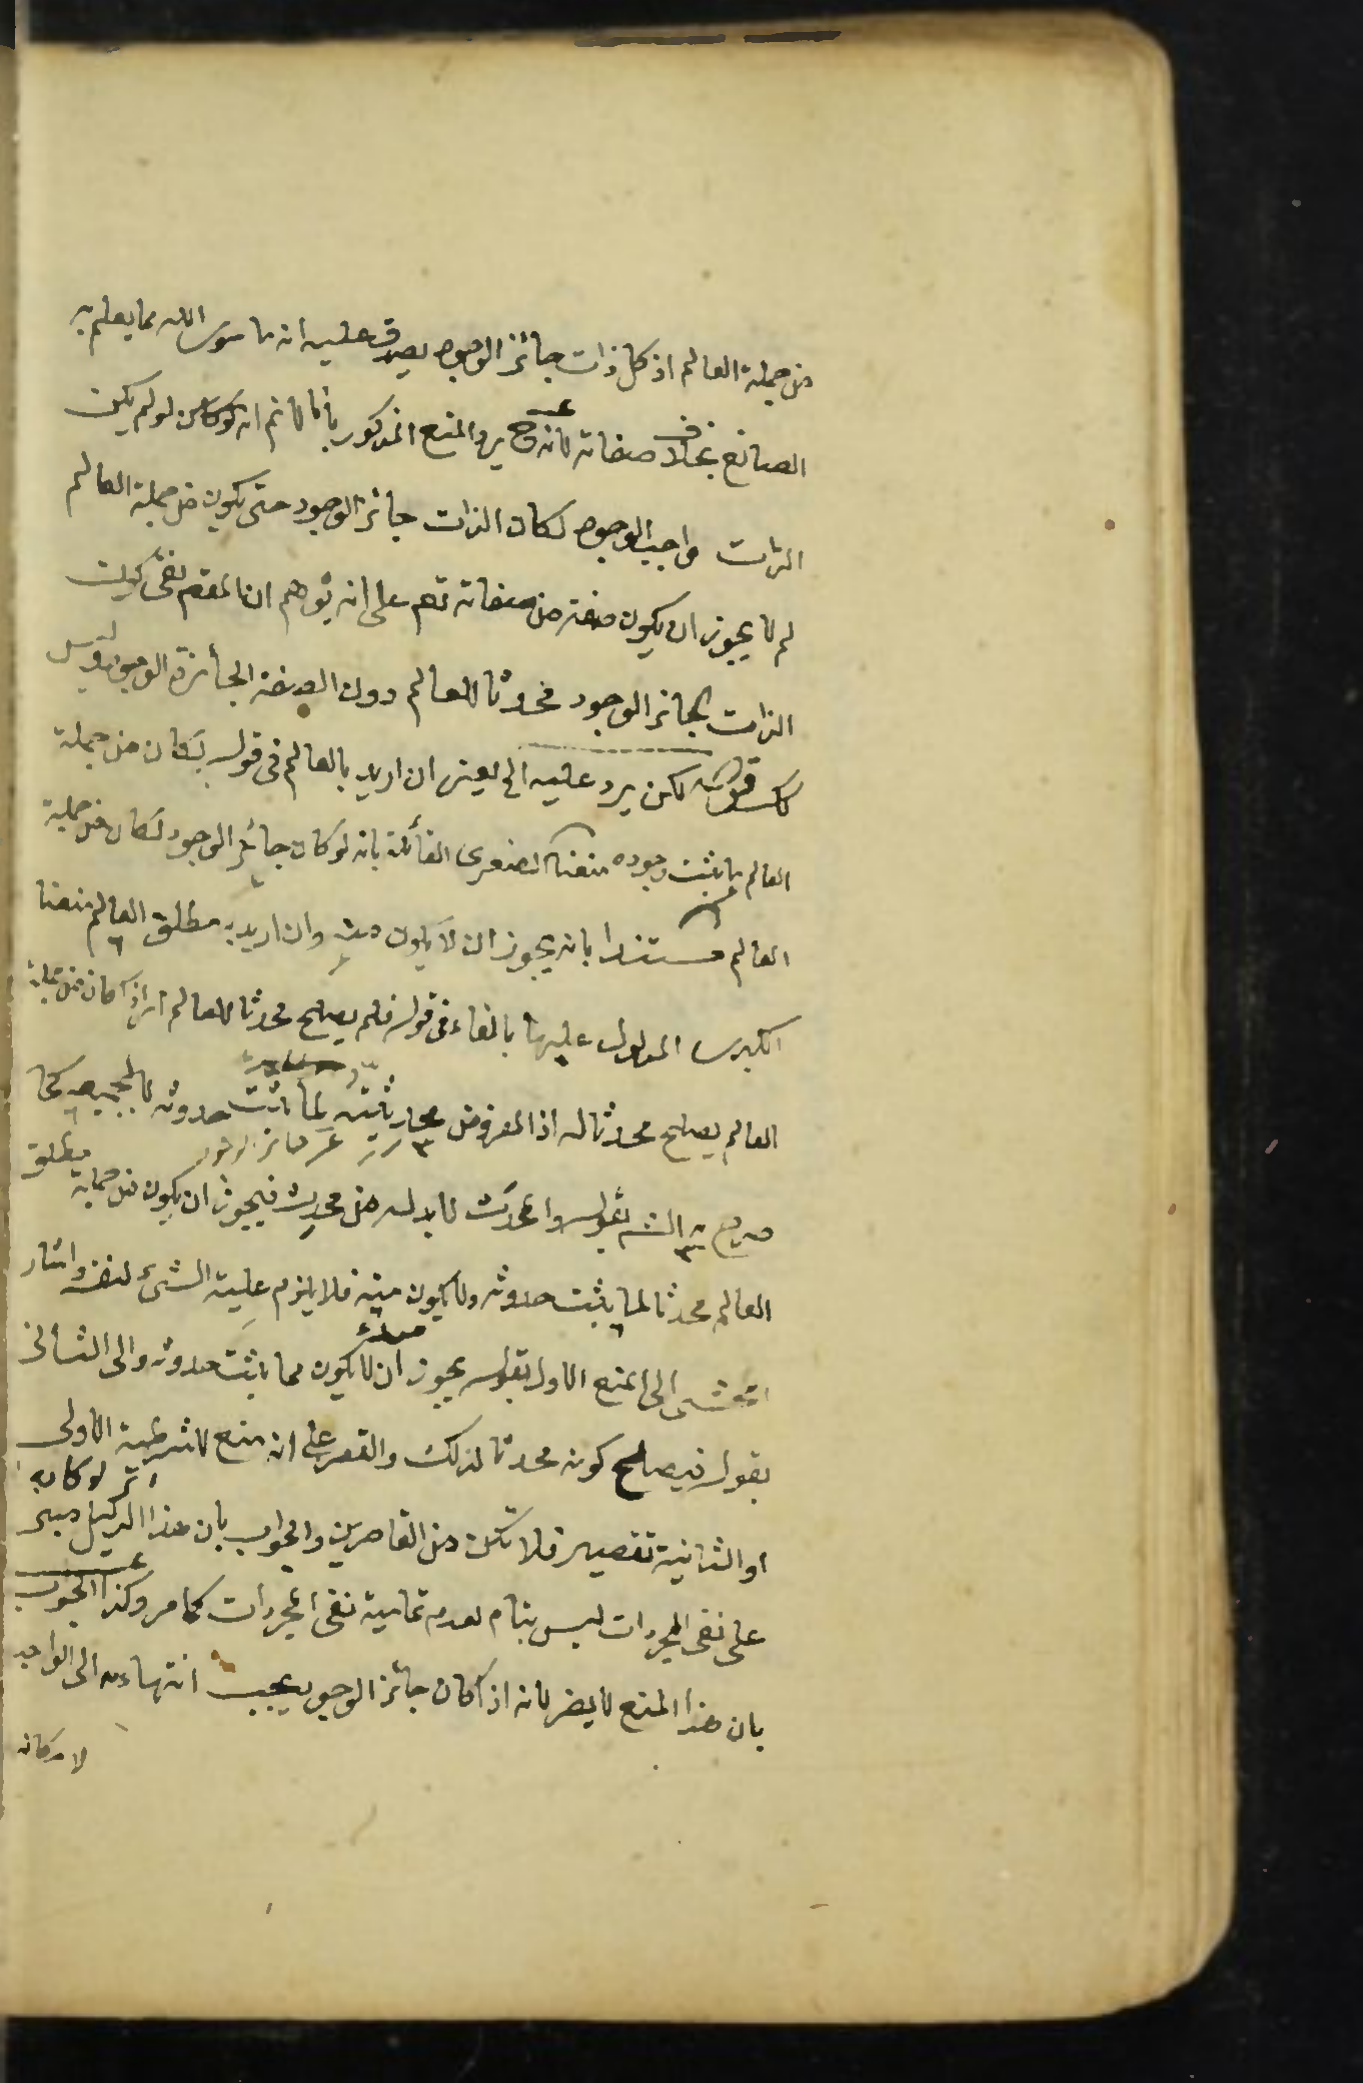 من جملة العالم اذ كل ذات جائز الوجود يصدق عليه انه ما سوى الله مما يعلم به
الصانع بخلاف صفاته لانه ح يرد المنع المذكور بانا لا نم انه لو لم يكن
الذات واجب الوجود لكان الذات جائز الوجود حتى يكون من جملة العالم
لم لا يجوز ان يكون صفة من صفاته تع على انه يوهم ان المقصم نفى كون
الذات الجائز الوجود محدثا للعالم دون الصفة الجائزة الوجود وليس
كك قوله لكن يرد عليه الخ يعنى ان اريد بالعالم فى قوله لكان من جملة
العالم ما يثبت وجوده منعنا الصغرى القائلة بانه لو كان جائز الوجود لكان من جملة
العالم مستندا بانه يجوز ان لا يكون منه وان اريد به مطلق العالم منعنا
الكبرى المدلول عليها بالفاء فى قوله فلم يصلح محدثا للعالم اى اذا كان من جملة
العالم يصلح محدثا له اذ المفروض محدثيته لما يثبت حدوثه لا لجميعه كما
جائز الوجود
صرح به الش بقوله والمحدث لا بد له من محدث فيجوز ان يكون من جملة مطلق
العالم محدثا لما يثبت حدوثه ولا يكون منه فلا يلزم علية الشئ لنفسه واشار
المحشى الى المنع الاول بقوله يجوز ان لا يكون مما يثبت حدوثه والى الثانى
بقوله فيصلح كونه محدثا لذلك والقصر على انه منع للشرطية الاولى
اى لو كان
او الثانية تقصير فلا تكن من القاصرين والجواب بان هذا الدليل مبنى
على نفى المجردات ليس بتام لعدم تمامية نفى المجردات كما مر وكذا الجواب
بان هذا المنع لا يضر لانه اذا كان جائز الوجود يجب انتهاءه الى الواجب
لامكانه